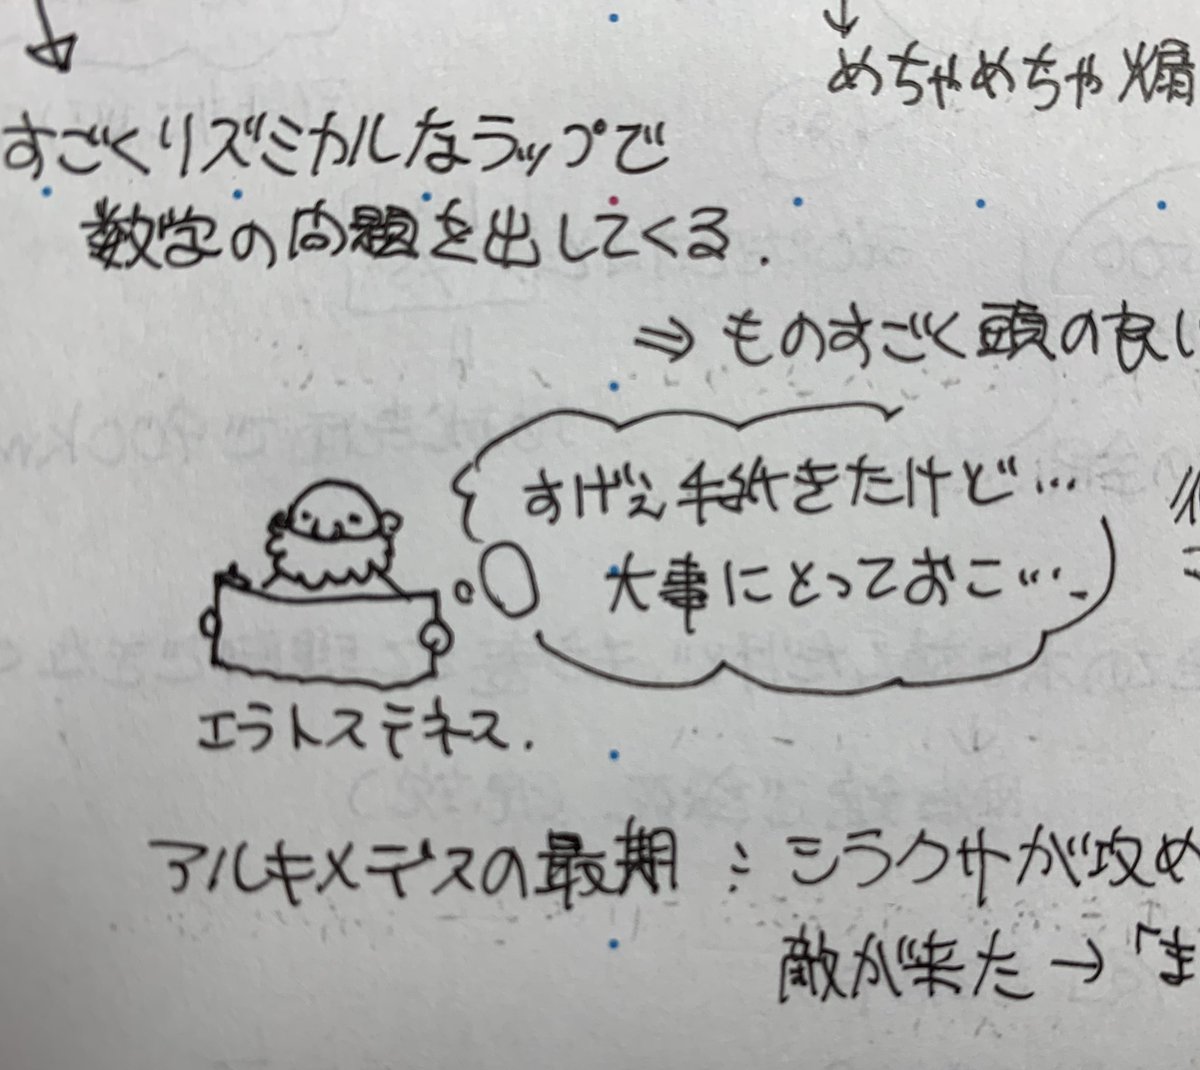 めちゃめちゃ煽
すごくリズミカルなラップで
数学の問題を出してくる.
⇒ ものすごく頭の良い
すげぇ手紙きたけど…
大事にとっておこ…
エラトステネス.
アルキメデスの最期 : シラクサが攻め
敵が来た → 「ま